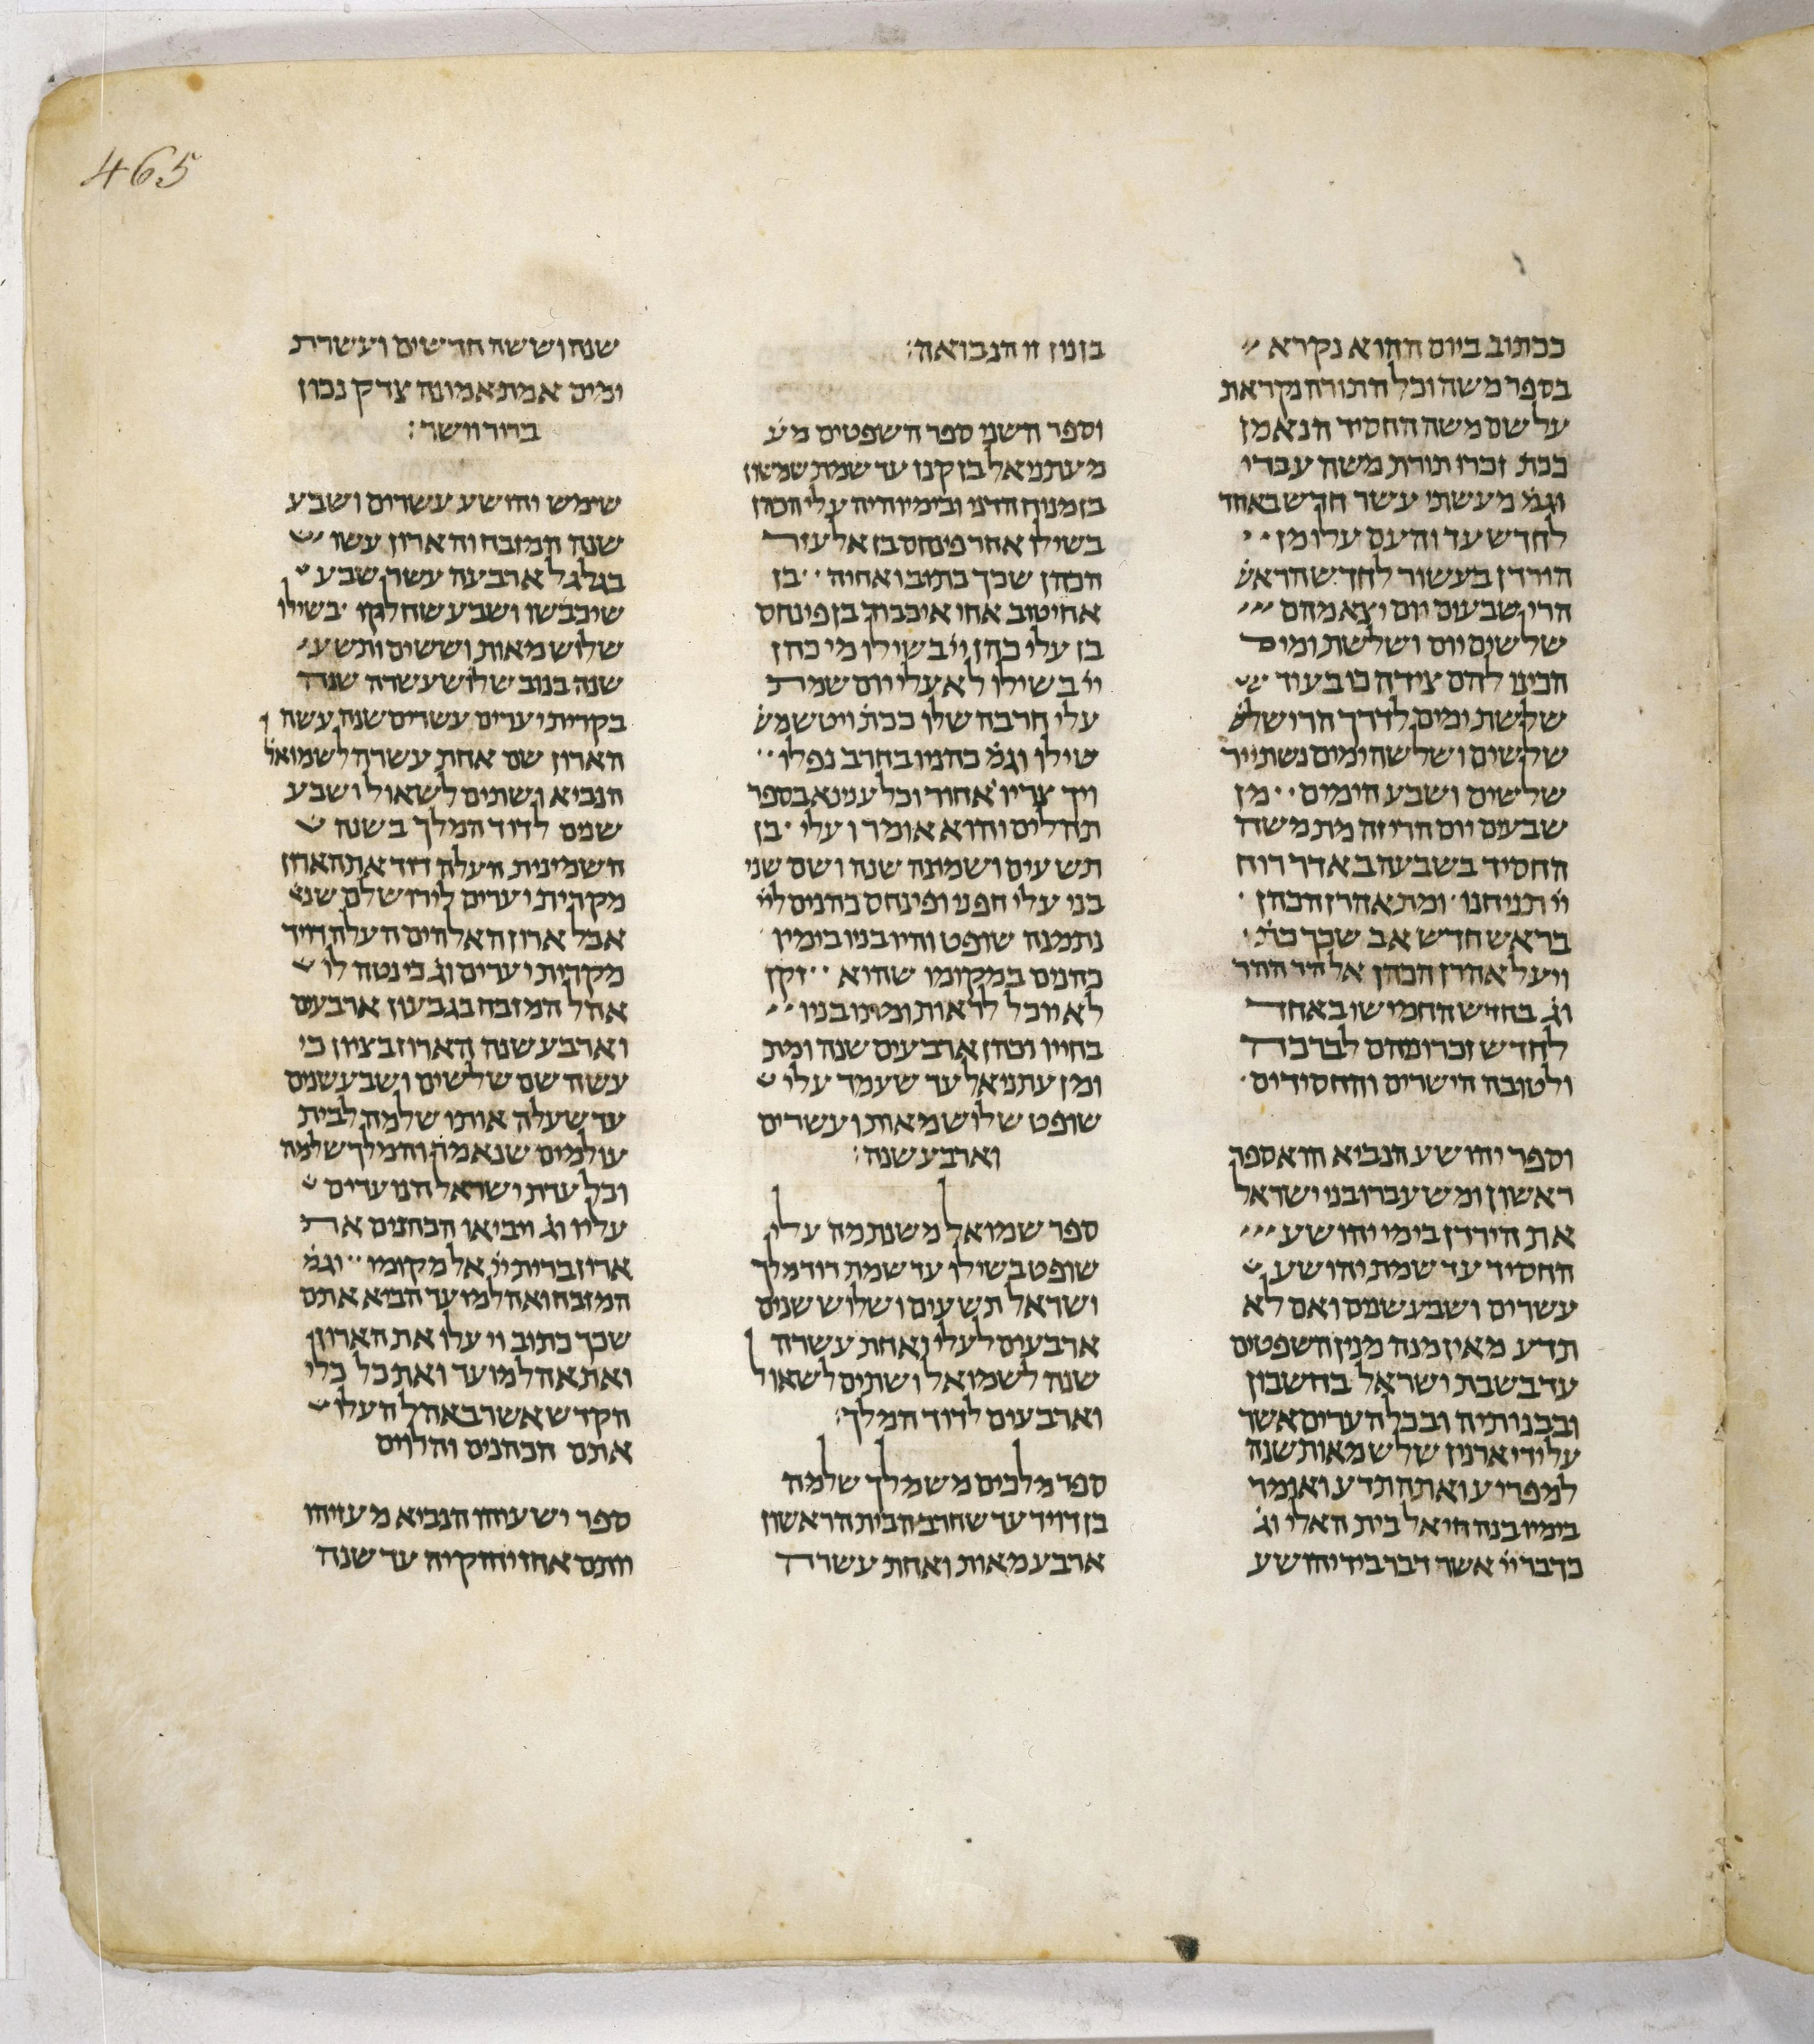 465
ככתוב ביום ההוא נקרא
בספר משה וכל התורה נקראת
על שם משה החסיד הנאמן
ככת זכרו תורת משה עבדי
וגמ מעשתי עשר חדש באחד
לחדש עד והעם עלו מן
הירדן בעשור לחדש הראש
הרי שבעים יום יצא מהם
שלשים יום ושלשת ימים
הכינו להם צידה כי בעוד
שלשת ימים לדרך הרי שלש
שלשים ושלשה ימים נשתייר
שלשים ושבע הימים מן
שבעים יום הרי זה מת משה
החסיד בשבעה באדר רוח
יי תניחנו ומת אהרן הכהן
בראש חדש אב שכך כת
ויעל אהרן הכהן אל הר ההר
וג בחדש החמישי באחד
לחדש זכרונהם לברכה
ולטובה הישרים והחסידים
וספר יהושע הנביא הוא ספר
ראשון ומשעברו בני ישראל
את הירדן בימי יהושע
החסיד עד שמת יהושע
עשרים ושבע שנים ואם לא
תדע מאין מנה מנין השפטים
עד בשבת ישראל בחשבון
ובבנותיה ובכל הערים אשר
על ידי ארנון שלש מאות שנה
למפריע ואתה תדע ואומר
בימיו בנה חיאל בית האלי וג
כדבר יי אשר דבר ביד יהושע
בזמן זו הנבואה:
וספר השני ספר השפטים מע
מעתניאל בן קנז עד שמת שמשון
בזמנוח הדני ובימיו היה עלי הכהן
בשילו אחר פינחס בן אלעזר
הכהן שכך כתוב ואחיה בן
אחיטוב אחי איכבוד בן פינחס
בן עלי כהן יי בשילו מי כהן
יי בשילו לא עלי יום שמת
עלי חרבה שלו ככת ויטש משכ
שילו וגמ כהניו בחרב נפלו
ויך צריו אחור וכל ענינא בספר
תהלים והוא אומר ועלי בן
תשעים ושמנה שנה ושם שני
בני עלי חפני ופינחס כהנים ליי
נתמנה שופט והיו בניו בימין
כהנים במקומו שהוא זקן
לא יוכל לראות ומתו בניו
בחייו וכהן ארבעים שנה ומת
ומן עתניאל עד שעמד עלי
שופט שלוש מאות ועשרים
וארבע שנה:
ספר שמואל משנתמנה עלי
שופט בשילו עד שמת דוד מלך
ישראל תשעים ושלוש שנים
ארבעים לעלי ואחת עשרה
שנה לשמואל ושתים לשאול
וארבעים לדוד המלך:
ספר מלכים משמלך שלמה
בן דויד עד שחרב הבית הראשון
ארבע מאות ואחת עשרה
שנה וששה חדשים ועשרת
ימים אמת אמונה צדק נכון
ברור וישר:
שימש יהושע עשרים ושבע
שנה המזבח והארון עשו
בגלגל ארבעה עשר שבע
שיכבשו ושבע שחלקו בשילו
שלוש מאות וששים ותשע
שנה בנוב שלוש עשרה שנה
בקרית יערים עשרים שנה עשה
הארון שם אחת עשרה לשמואל
הנביא ושתים לשאול ושבע
שנים לדוד המלך בשנה
השמינית העלה דוד את הארון
מקרית יערים לירושלם שנא
אבל ארון האלהים העלה דויד
מקרית יערים וג כי נטה לו
אהל המזבח בגבעון ארבעים
וארבע שנה הארון בציון כי
עשה שם שלשים ושבע שנים
עד שעלה אותו שלמה לבית
עולמים שנאמר והמלך שלמה
וכל עדת ישראל הנועדים
עליו וג ויביאו הכהנים את
ארון ברית יי אל מקומו וגמ
המזבח ואהל מועד הביא אתם
שכך כתוב ויעלו את הארון
ואת אהל מועד ואת כל כלי
הקדש אשר באהל העלו
אתם הכהנים והלוים
ספר ישעיהו הנביא מעזיהו
יותם אחז יחזקיה עד שנה